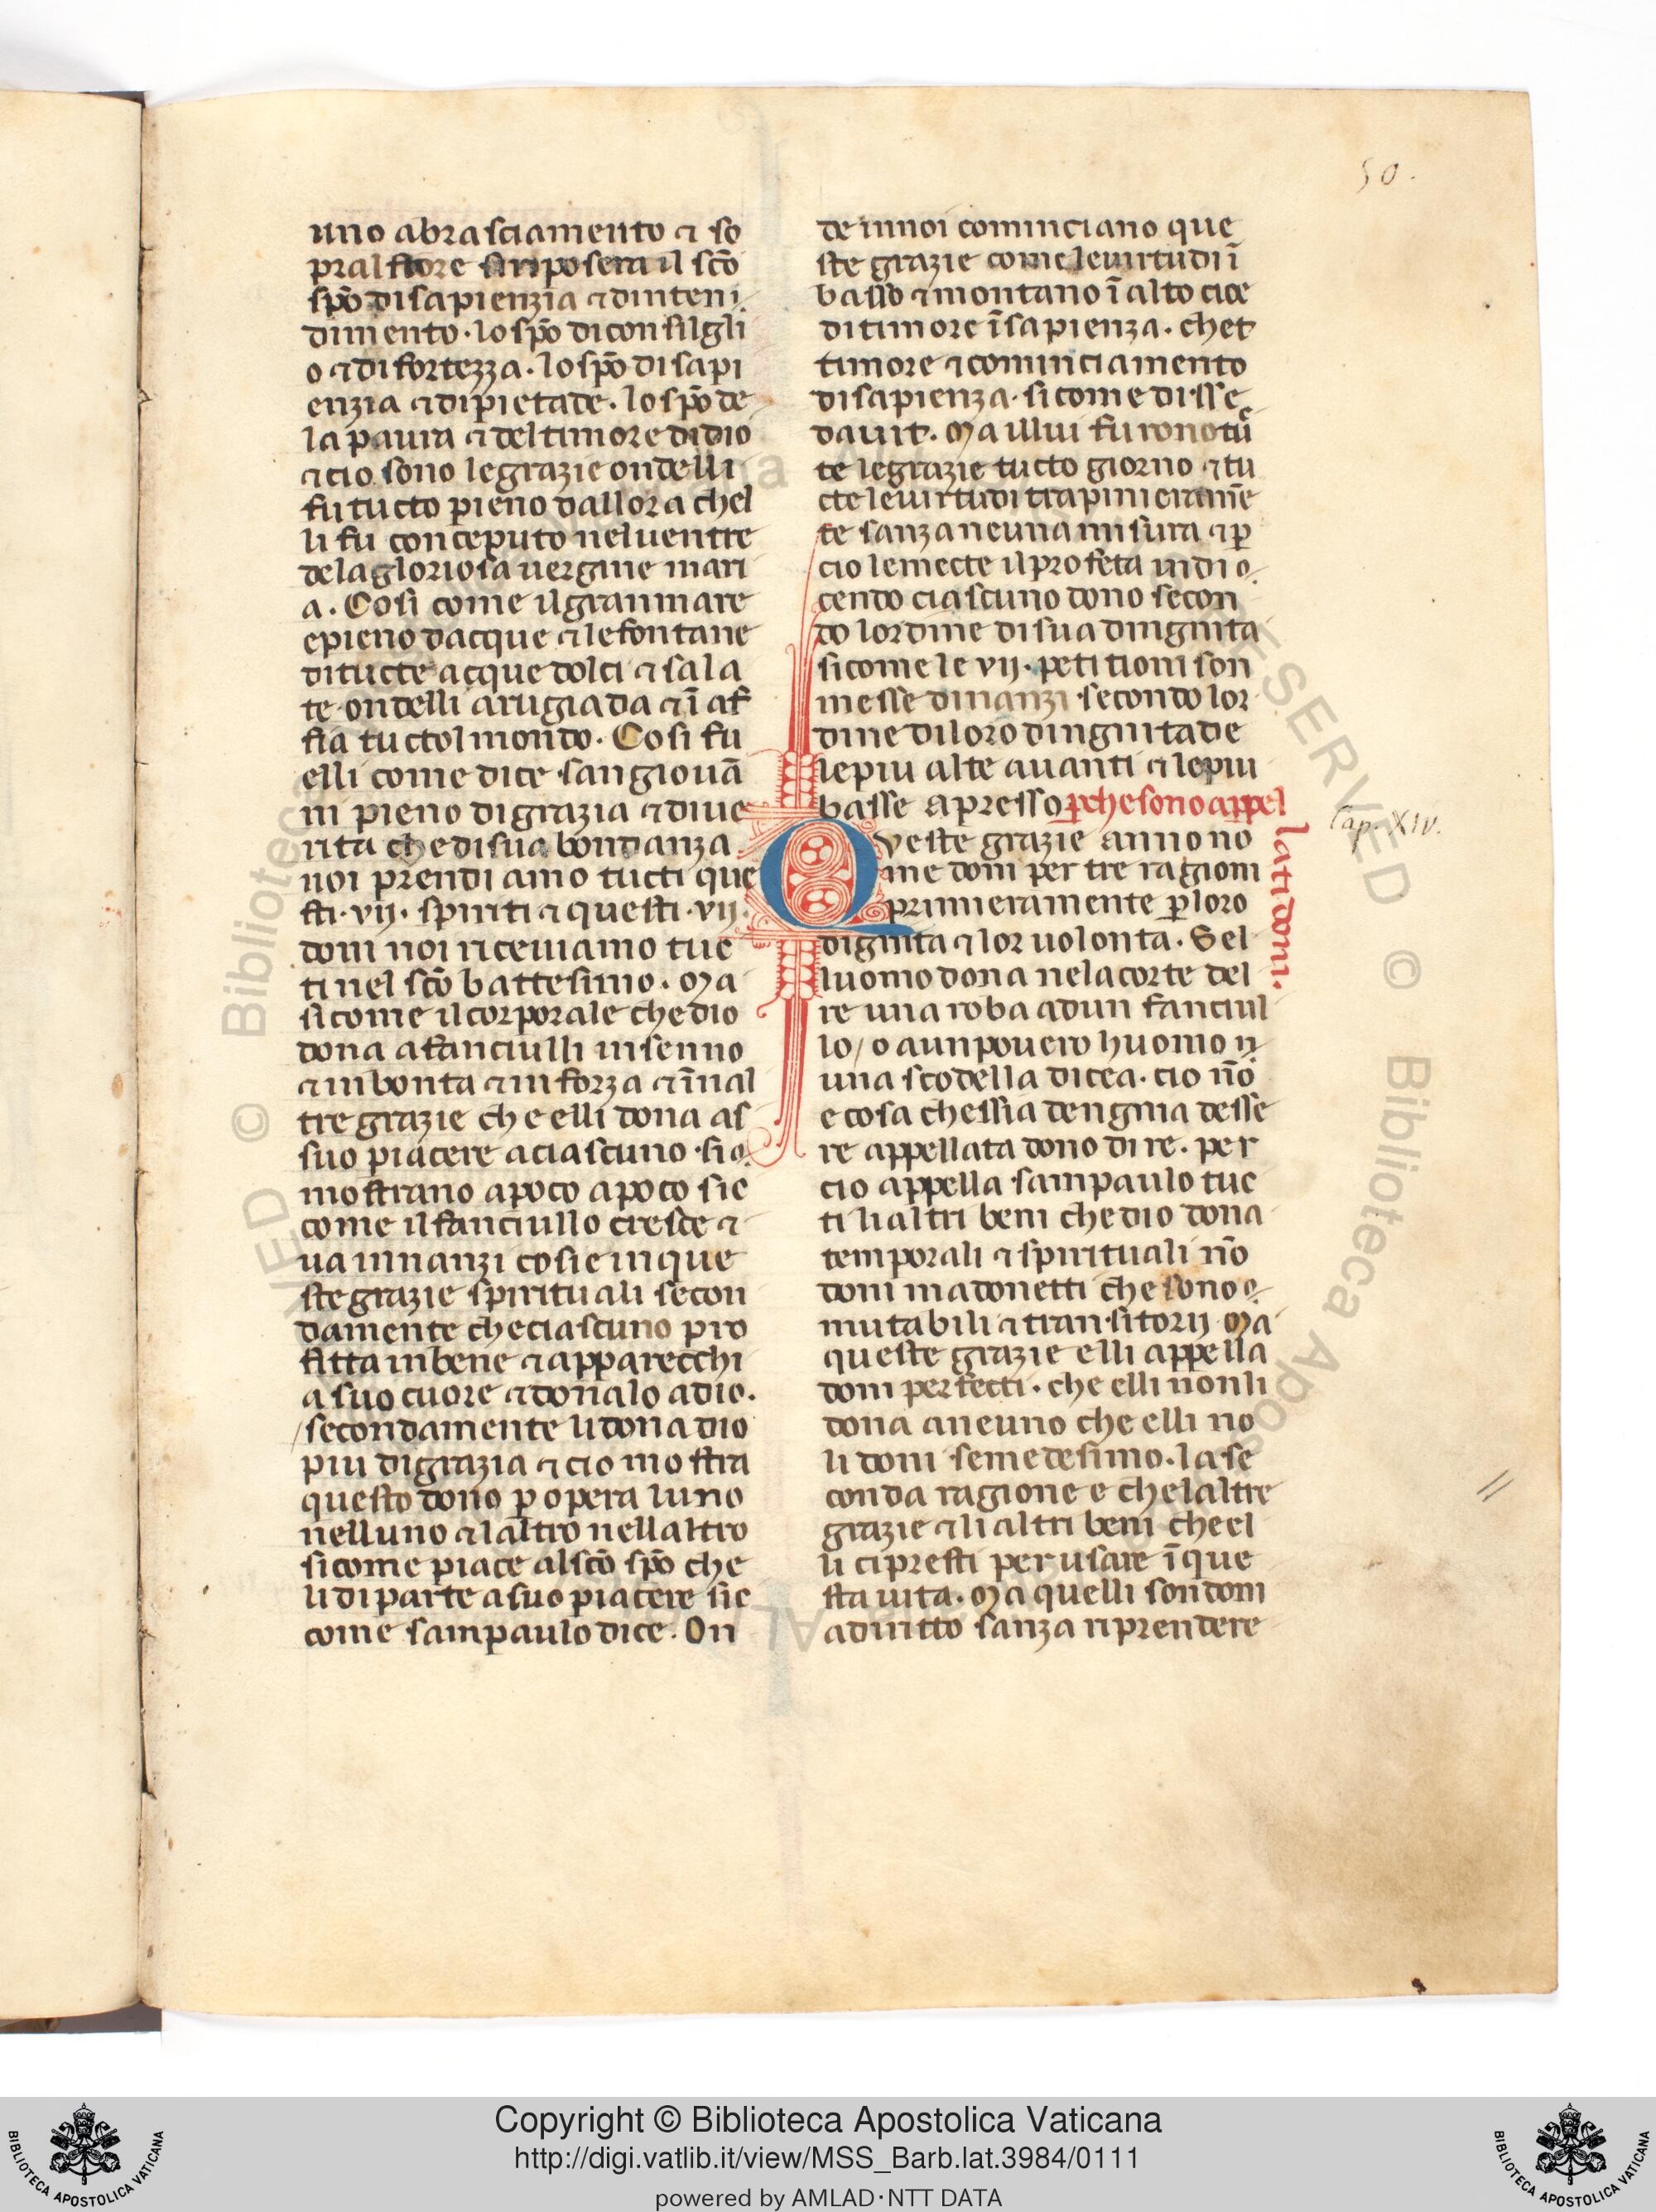 50.
uno abrasciamento ⁊ so
pralfiore siriposera il sc̄o
sp̄o disapienzia ⁊ dinten
dimento · lo sp̄o diconsilgli
o ⁊ di fortezza · lo sp̄o di sapi
enzia ⁊ dipietade · lo sp̄o de
la paura ⁊ deltimore didio
⁊ cio sono legrazie ondelli
fu tucto pieno dallora chel
li fu conceputo neluentre
delagloriosa uergine mari
a . Cosi come ilgranmare
epieno dacque ⁊ lefontane
ditucte acque dolci ⁊ sala
te ondelli arugiada ⁊ ī af
fia tuctol mondo . Cosi fu
elli come dice sangiouā
ni pieno digrazia ⁊ diue
rita chedisua bondanza
noi prendiamo tucti que
sti · vij · spiriti ⁊ questi · vij ·
doni noi riceuiamo tuc
ti nel sc̄o battesimo . Ma
sicome ilcorporale chedio
dona afanciulli insenno
⁊ inbonta ⁊ in forza ⁊ īnal
tre grazie che elli dona as
suo piacere aciascuno · si
mostrano apoco apoco sic
come ilfanciullo cresce ⁊
ua innanzi cosie inque
ste grazie spirituali secon
damente checiascuno pro
fitta inbene ⁊ apparecchi
a suo cuore ⁊ donalo adio .
secondamente lidona dio
piu digrazia ⁊ cio mostra
questo dono ꝑ opera luno
nelluno ⁊ laltro nellaltro
sicome piace alsc̄o sp̄o che
li diparte asuo piacere sic
come sampaulo dice . On
de innoi cominciano que
ste grazie come leuirtudi ī
basso ⁊ montano ī alto cioe
ditimore īsapienza . chet
timore ⁊ cominciamento
disapienza · sicome disse
dauit . Ma illui furono tu
te legrazie tucto giorno ⁊ tu
cte leuirtudi trapinieramē
te sanza neuna misura ⁊ ꝑ
cio lemecte ilprofeta indi
cendo ciascuno dono secon
do lordine disua dingnita
sicome le vij · petitioni son
messe dinanzi secondo lor
dine diloro dingnitade
lepiu alte auanti ⁊ lepiu
basse apresso ꝑche sono appel
lati doni.
Cap. XIV.
Queste grazie anno no
me doni per tre ragioni
primieramente ꝑ loro
dignita ⁊ lor uolonta . Sel
luomo dona nelacorte del
re una roba adun fanciul
lo / o aunpouero huomo
una scodella dicea . cio nō
e cosa chessia dengnia desse
re appellata dono di re . per
cio appella sampaulo tuc
ti lialtri beni chedio dona
temporali ⁊ spirituali nō
doni madonetti che sono
mutabili ⁊ transitorij Ma
queste grazie elli appella
doni perfecti . che elli nonli
dona aneuno che elli no
li doni semedesimo . la se
conda ragione e chelaltre
grazie ⁊ li altri beni cheel
li cipresti per usare ī que
sta uita . Ma quelli son doni
adiritto sanza riprendere
Copyright © Biblioteca Apostolica Vaticana
http://digi.vatlib.it/view/MSS_Barb.lat.3984/0111
powered by AMLAD·NTT DATA
BIBLIOTECA APOSTOLICA VATICANA
BIBLIOTECA APOSTOLICA VATICANA